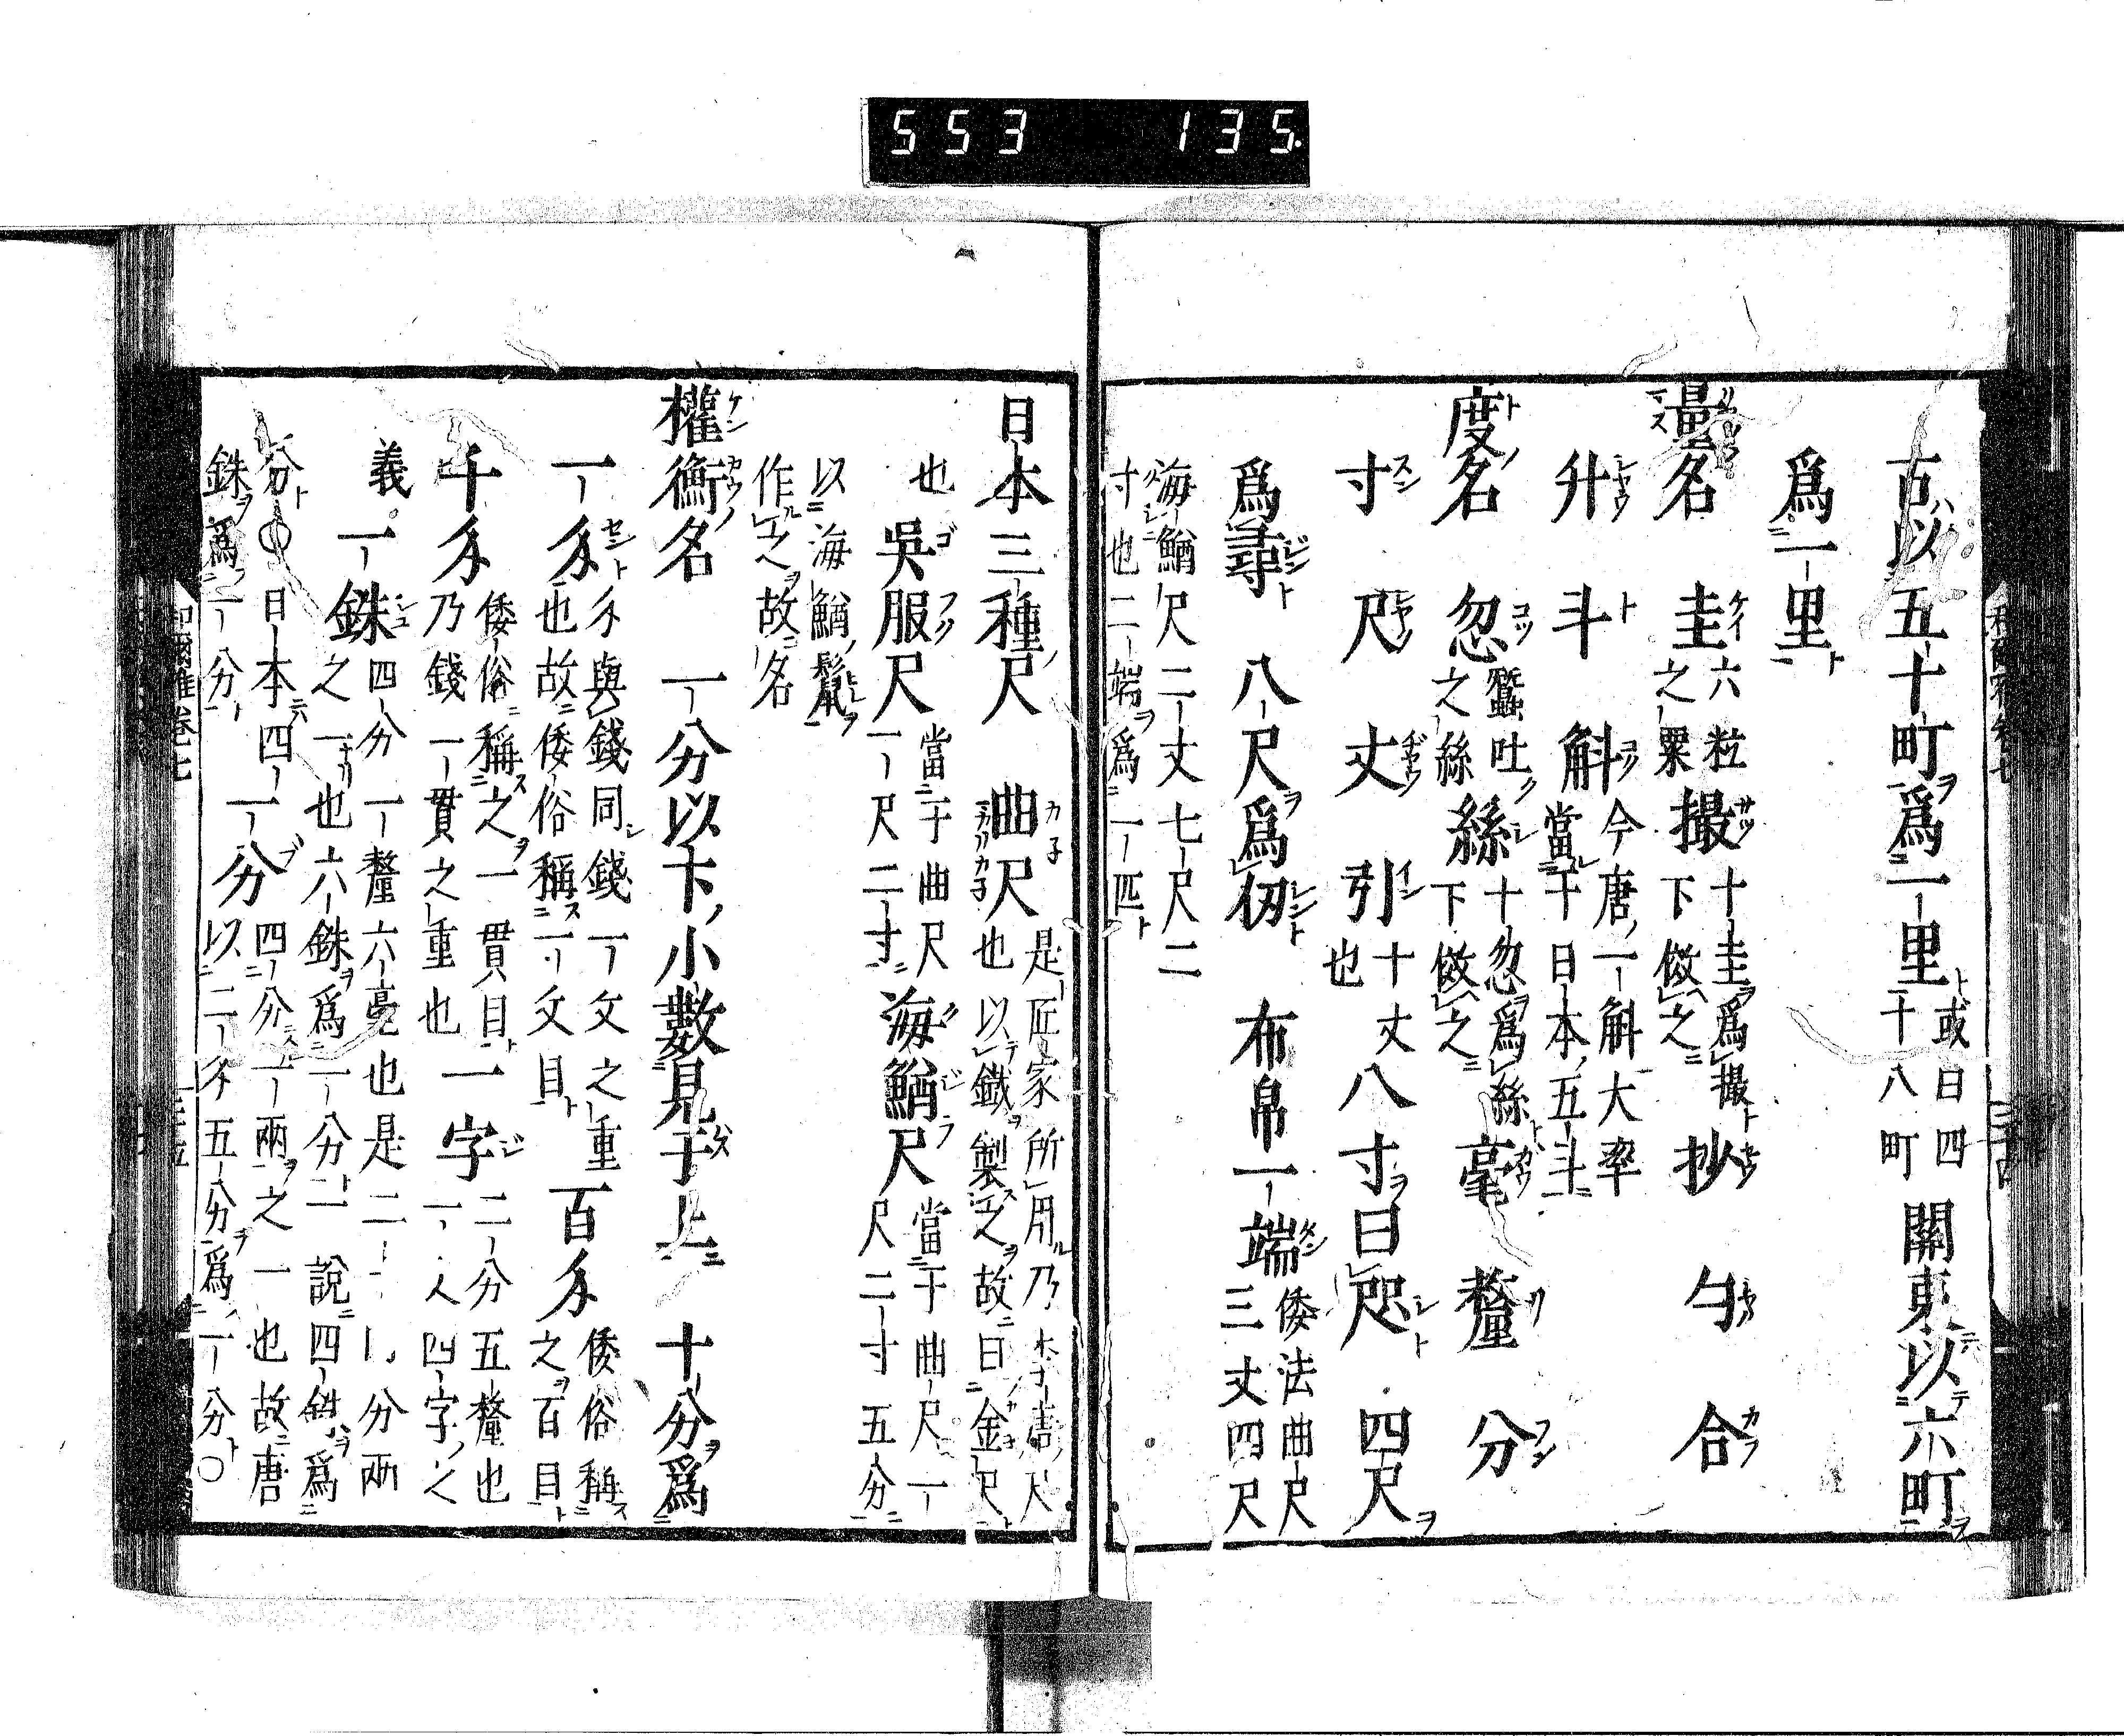 553 135
古以五十町爲一里 或曰四十八町 關東以六町
爲一里
量名 圭 六粒之粟 撮 十圭爲撮下倣之 抄 勺 合
升 斗 斛 今唐一斛大率當于日本五斗
度名 忽 蠶吐之絲 絲 十忽爲絲下倣之 毫 釐 分
寸 尺 丈 引 十丈也 八寸曰咫 四尺
爲尋 八尺爲仭 布帛一端 倭法曲尺三丈四尺
海鰌尺二丈七尺二寸也二端爲一匹
日本三種尺 曲尺 是匠家所用乃 也以鐵製之故曰金尺
也 吳服尺 當于曲尺一尺二寸 海鰌尺 當于曲尺一尺二寸五分
以海鰌鬚作之故名
權衡名 一分以下小數見于上 十分爲
一匁 匁與錢同錢一文之重也故倭俗稱一文目 百匁 倭俗稱之百目
千匁 倭俗稱之一貫目乃錢一貫之重也 一字 二分五釐也一 四字之
義 一銖 四分一釐六毫也是 分兩之一也六銖爲一分一說四銖爲
分 ○日本四分一兩之一也故唐 一分 四分 以二匁五分爲一分○
銖爲一分
和爾雅卷七